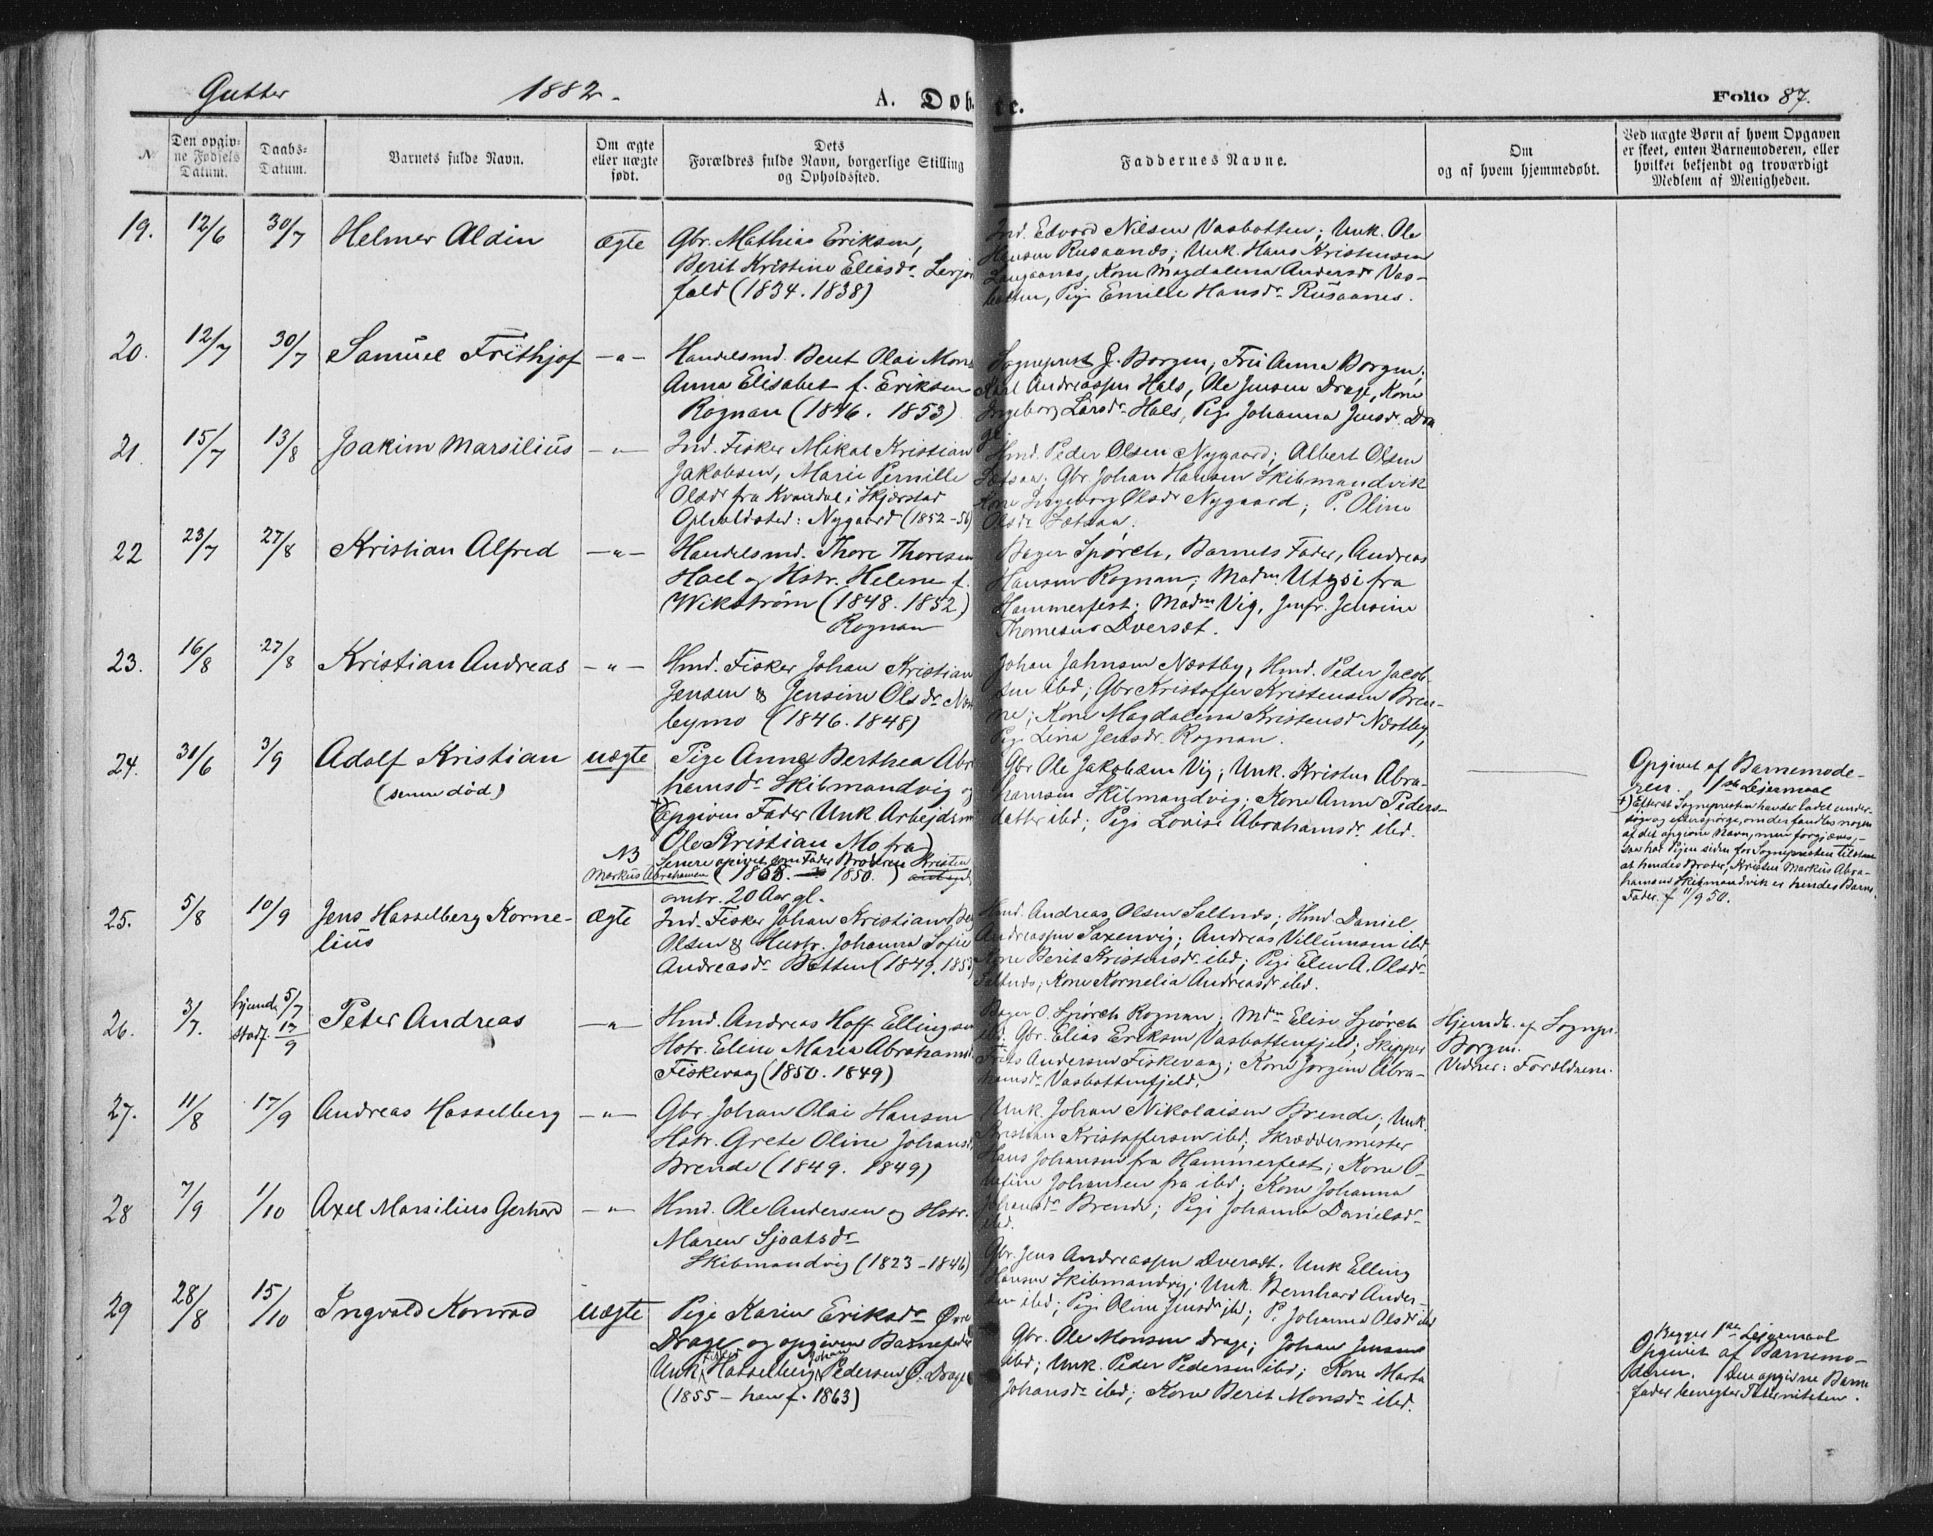 Gutter 1882. A. Døbte. Folio 87.
No
Den opgivne Fødsels Datum.
Daabs-Datum.
Barnets fulde Navn.
Om ægte eller uægte født.
Dets Forældres fulde Navn, borgerlige Stilling og Opholdssted.
Faddernes Navne.
Om og af hvem hjemmedøbt.
Ved uægte Børn af hvem Opgaven er skeet, enten Barnemoderen, eller hvilket bekjendt og troværdigt Medlem af Menigheden.
19. 12/6 30/7 Helmer Aldin ægte
Gbr. Mathias Eriksen,
Berit Kristine Eliasdr.
fald (1834. 1838)
Ind. Edvard Nilsen Vasbotten; Unk. Ole
Hansen Rusaanes; Unk. Hans Kristensen
Langaanas, Kone Magdalena Andersdr Vas-
botten, Pige Emilie Hansdr. Rusaanes.
20. 12/7 30/7 Samuel Frithjof —"—
Handelsmd. Berit Olai
Anna Elisabet f. Eriksen
Rognan (1846. 1853)
Sogneprest G. Borgen, Fru Anna Borgen,
Karl Andreassen Hals, Ole Jensen Drage, Kone
Ingeborg Larsdr. Hals, Pige Johanna Jensdr. Dra
ge.
21. 15/7 13/8 Joakim Marsilius —"—
Ind. Fisker Mikal Kristian
Jakobsen, Marie Pernille
Olsdr fra Kvændal i Skjerstad
Opholdsted: Nygaard (1852-56)
Hmd. Peder Olsen Nygaard; Albert Olsen
Gbr. Johan Hansen Skibmandvik
Kone Ingeborg Olsdr Nygaard; P. Oline
Olsdr.
22 23/7 27/8 Kristian Alfred —"—
Handelsmd. Thore Thoresen
Hael og Hstr. Helene f.
Wikstrøm (1848. 1852)
Rognan
Bager Spørck, Barnets Fader, Andreas
Hansen Rognan; Madm Utzsi fra
Hammerfest; Madm Vig, Jmfr. Jensine
Thomesus Dverset.
23. 16/8 27/8 Kristian Andreas —"—
Hmd. Fisker Johan Kristian
Jensen & Jensine Olsdr. Næst
bymo (1846. 1848)
Johan Jahnsen Næstby, Hmd. Peder Jacob-
sen ibd; Gbr Kristoffer Kristensen Bren-
ne; Kone Magdalena Kristensdr Næstby,
Pige Lina Jensdr. Rognan.
24. 31/6 3/9 Adolf Kristian uægte
(senere død)
Pige Anne Berthea Abra
hamsdr Skibmandvig og
(Opgiven Fader Unk Arbejdsmd
Ole Kristian Mo fra)
NB Senere opgivet som Fader Broderen Kristen
Markus Abrahamsen (1868. 1850.)
omtr. 20 Aar gl.
Gbr Ole Jakobsen Vig; Unk. Kristen Abra-
hamsen Skibmandvig; Kone Anne Peders-
datter ibd; Pige Lovise Abrahamsdr ibd.
Opgivet af Barnemode-
ren. 1ste Lejermaal
†) Efterat Sognepresten havde ladet under-
søge og efterspørge, om der fandtes nogen
af det opgivne Navn, men forgjæves,
saa har Pigen siden for Sognepresten tilstaaet
at hendes Broder, Kristen Markus Abra-
hamsen Skibmandvik er hendes Barns
Fader. f 11/9 50.
25. 5/8 10/9 Jens Hasselberg Korne- Ægte
lius
Ind. Fisker Johan Kristian
Olsen & Hustr. Johanna Sofie
Andreasdr. Botten (1849. 1853)
Hmd. Andreas Olsen Saltnes; Hmd. Daniel
Andreassen Saxenvig; Andreas Villumsen ibd,
Kone Berit Kristensdr ibd; Pige Elen A. Olsdr.
Saltnes, Kone Kornelia Andreasdr ibd.
26. 3/7. hjemde 5/7 stadf. 17/9 Peter Andreas —"—
Hmd. Andreas Hoff Ellingsen
Hstr. Eline Maria Abrahamsd.
Fiskevaag (1850. 1849)
Bager O. Spørck Rognan; Mdm Elise Spørck
ibd; Gbr. Elias Eriksen Vasbottenfjeld; Skipper
Andersen Fiskevaag; Kone Jorgine Abra-
hamsdr Vasbottenfjeld.
Hjemdb. af Sognepr.
Borgen.
Vidner: Foreldrene.
27. 11/8 17/9 Andreas Hasselberg —"—
Gbr. Johan Olai Hansen
Hstr. Grete Oline Johansd.
Brende (1849. 1849)
Unk. Johan Nikolaisen Brende; Unk.
Kristian Kristoffersen ibd; Skræddermester
Hans Johansen fra Hammerfest; Kone O-
lefine Johansen fra ibd; Kone Johanna
Johansdr Brende; Pige Johanna Danielsdr
ibd.
28 7/9 1/10 Axel Marsilius Gerhard —"—
Hmd. Ole Andersen og Hstr.
Maren Sjvatsdr
Skibmandvig (1823-1846)
Gbr. Jens Andreassen Dverset. Unk Elling
Hansen Skibmandvig; Unk. Bernhard Ander-
sen ibd; Pige Oline Jensdr ibd; P. Johanna Olsdr ibd
29 28/8 15/10 Ingvald Konrad uægte
Pige Karin Eriksdr Øvre
Drage og opgiven Barnefader
Unk. Hasselberg Johan Pedersen Ø. Drage
(1855 — han f. 1863)
Gbr. Ole Monsen Drage; Johan Jensen
ibd; Unk. Peder Pedersen ibd; Kone Marta
Johansdr ibd; Kone Berit Monsdr ibd.
Begges 1ste Lejermaal
Opgivet af Barnemo-
deren. Den opgivne Barne
fader benegter Paterniteten.